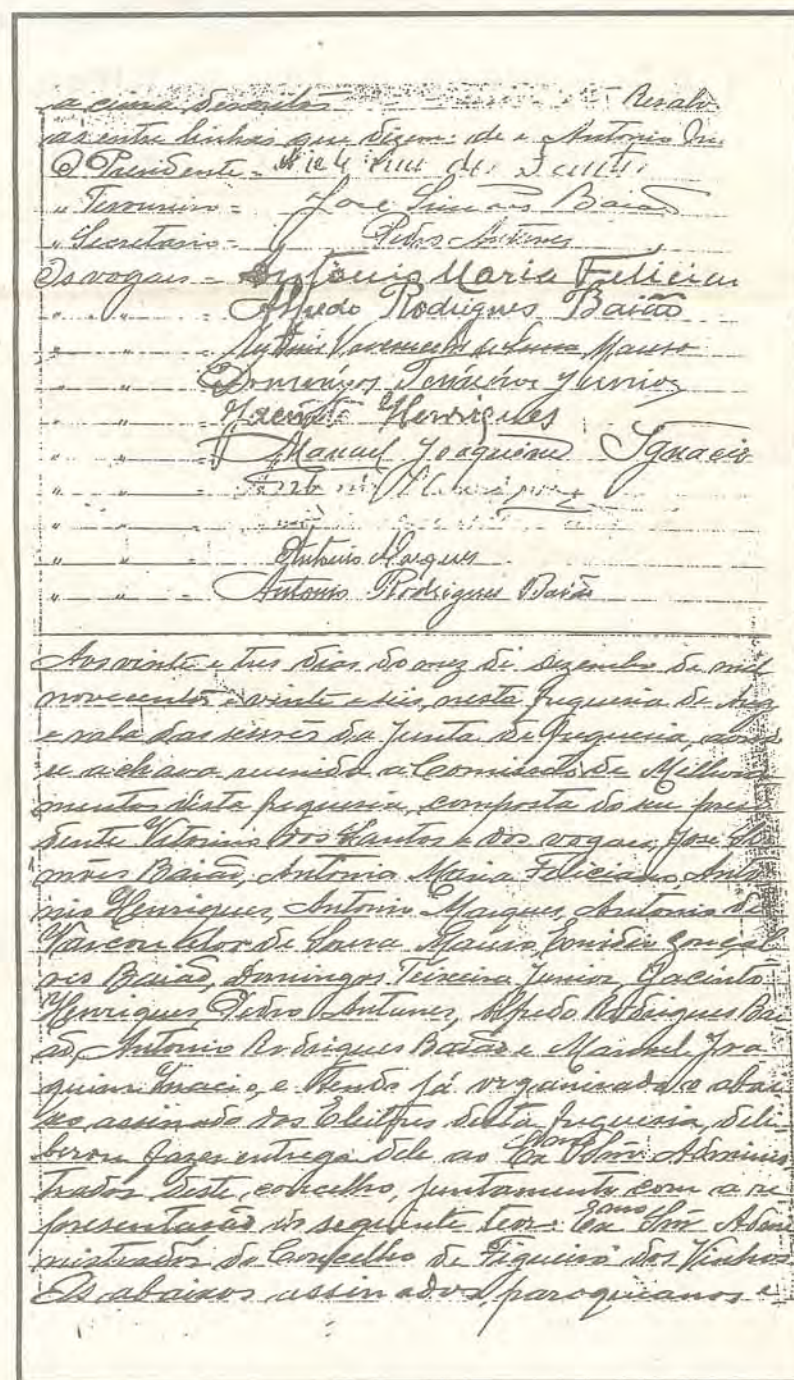 a cima descritos Resalv
as entre linhas que dizem: de e Antonio
O Presidente =
" Tesoureiro = José Simões Baião
" Secretario = Pedro Antunes
Os vogais = Antonio Maria Felician
" " = Alfredo Rodrigues Baião
" " = Antonio Vasconcelos de Sousa Manso
" " = Domingos Teixeira Junior
" " = Jacinto Henriques
" " = Manuel Joaquim Ignacio
" " =
" " =
" " = Antonio Marques
" " = Antonio Rodrigues Baião
Aos vinte e tres dias do mez de dezembro de mil
novecentos e vinte e seis, nesta freguesia de
e sala das sessões da Junta de freguesia, aonde
se achava reunida a Comissão de Milhora
mentos desta freguesia, composta do seu presi
dente Vitorino dos Santos e dos vogaes, José Si
mões Baião, Antonio Maria Feliciano, Anto
nio Henriques, Antonio Marques, Antonio de
Vasconcelos de Sousa Manso, Emidio Gonçal
ves Baião, Domingos Teixeira Junior, Jacinto
Henriques, Pedro Antunes, Alfredo Rodrigues Bai
ão, Antonio Rodrigues Baião e Manuel Joa
quim Inacio, e tendo já organisado o abai
xo assinado dos Eleitores desta freguesia, deli
berou fazer entrega dele ao Exmo Snr Adminis
trador deste, concelho, juntamente com a re
presentação do seguinte teor: Exmo Snr Admi
nistrador do Concelho de Figueiró dos Vinhos
Os abaixos assinados, paroquianos e